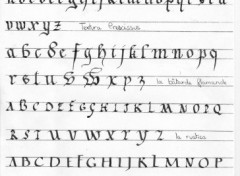 a b c d e f g h i j k l m n o p q r s t u
v w x y z Textura Prescissus
a b c d e f g h i j k l m n o p q
r s t u S S x y z la bâtarde flamande
A B C D E F G G H I J K L M N O P Q
R S T U V W X Y Z la rustica
A B C D E F G H I J K L M N O P